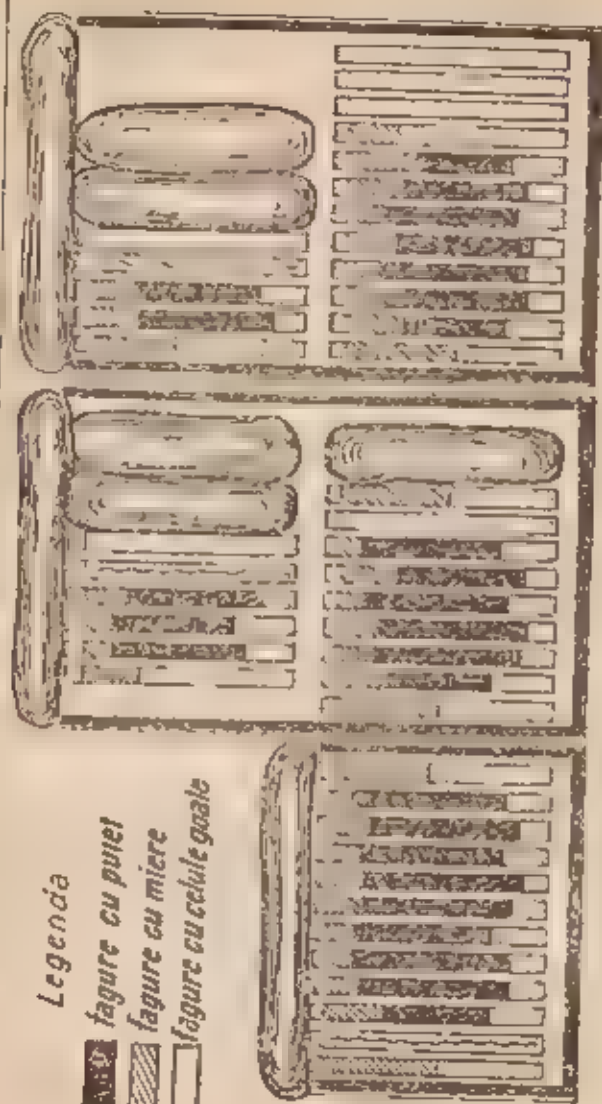 Legenda
fagure cu puiet
fagure cu miere
fagure cu celule goale